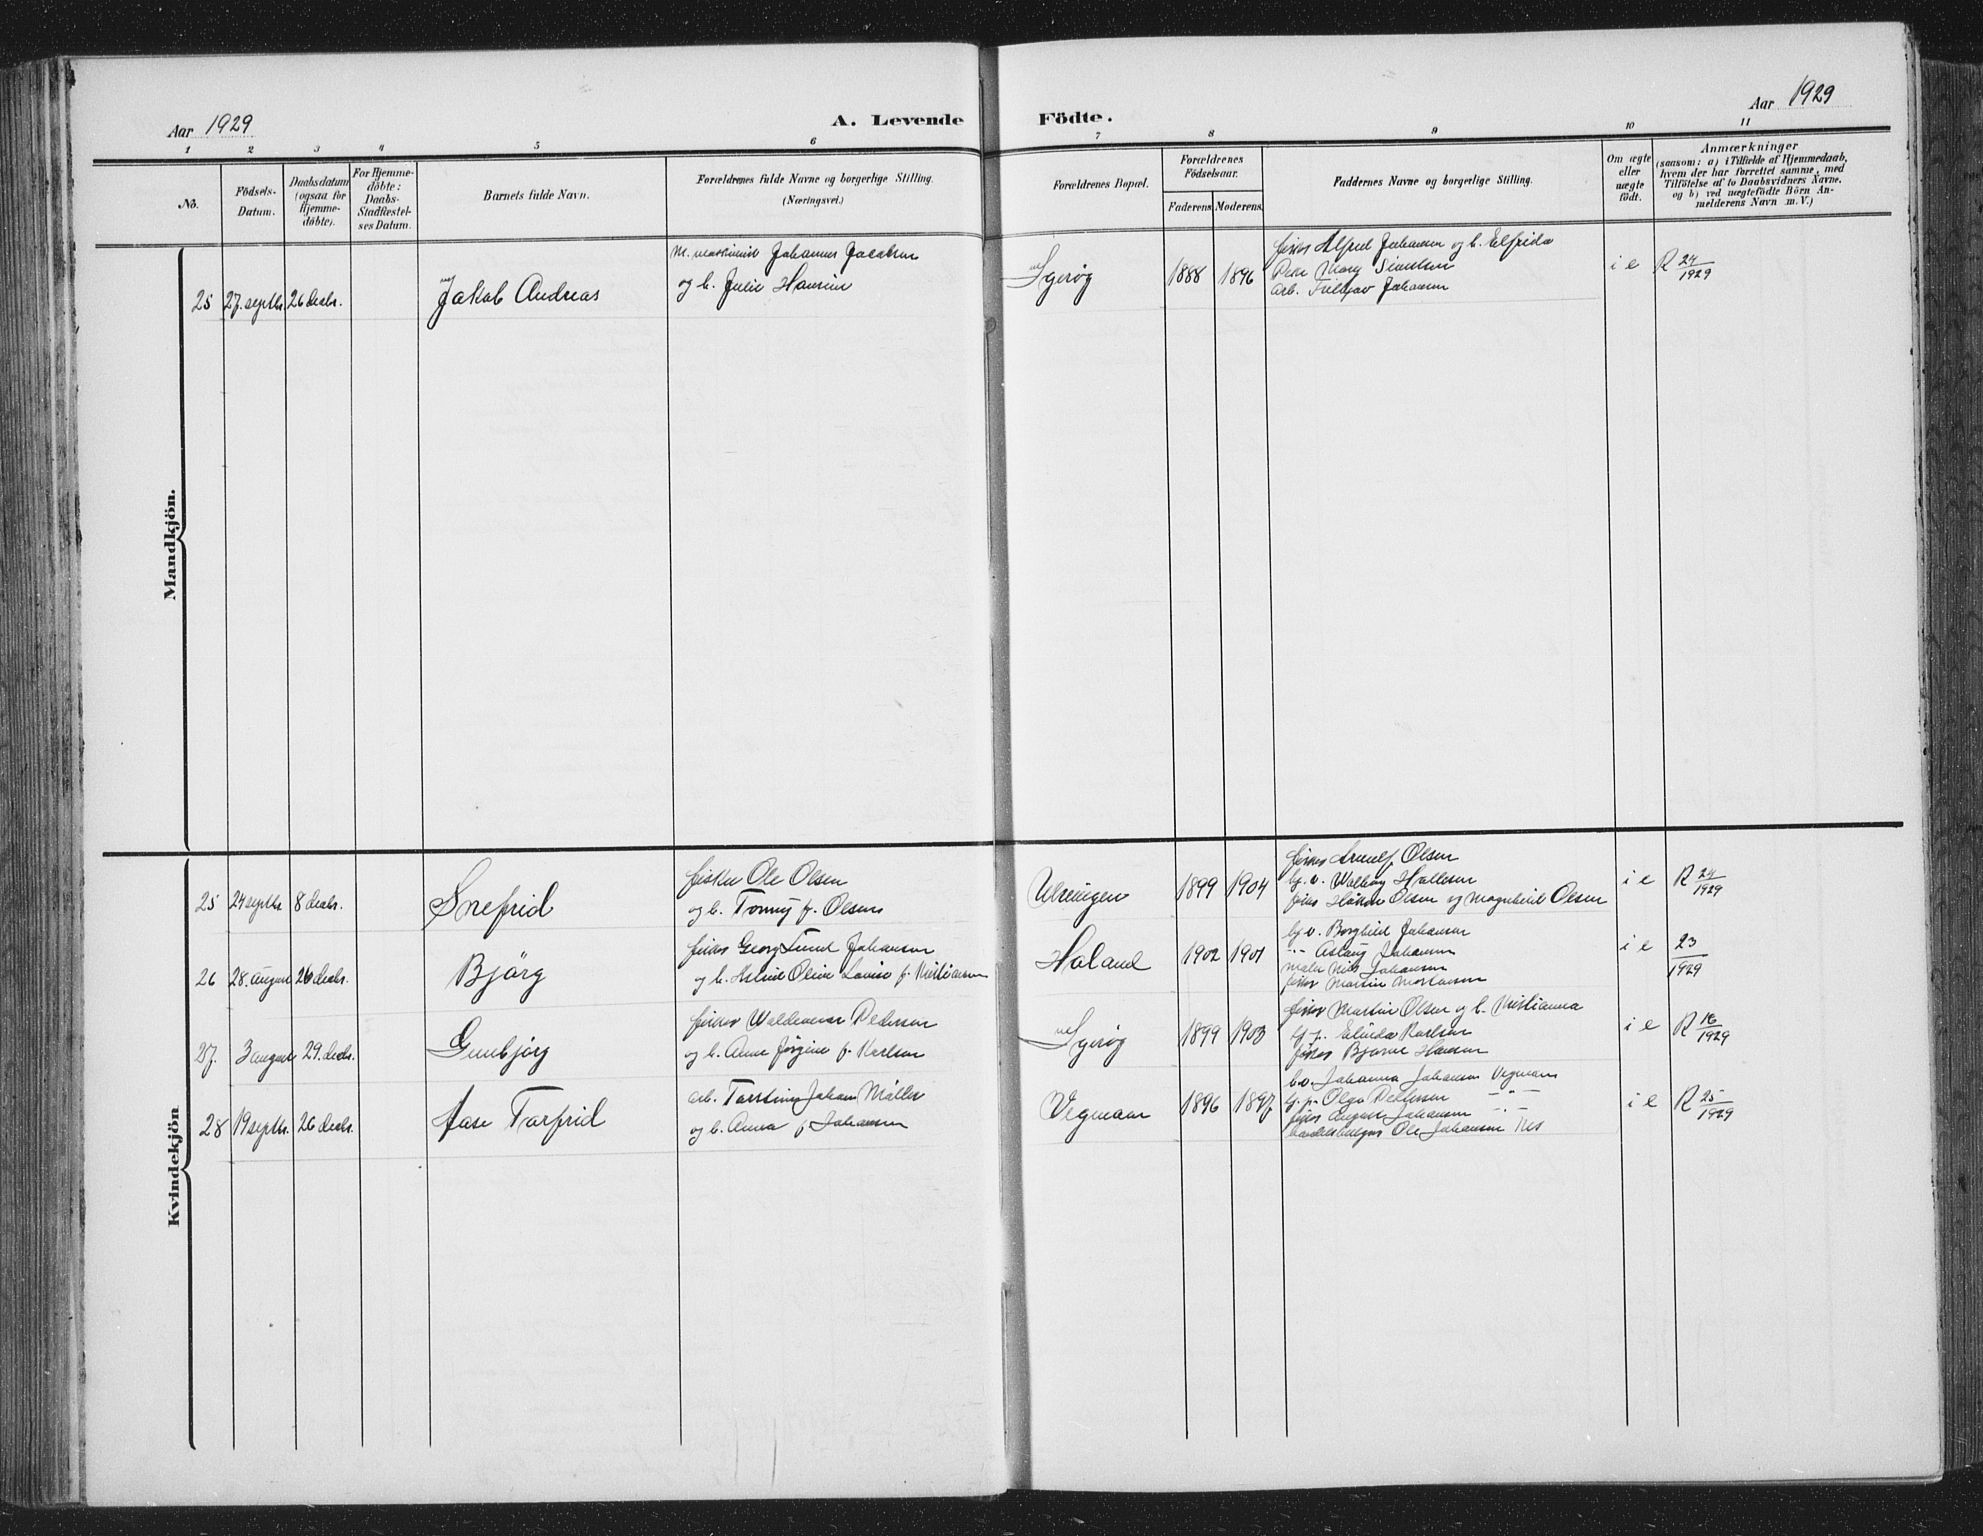 Aar 1929
A. Levende
Födte.
Aar 1929
1 2 3 4 5 6 7 8 9 10 11
No.
Födsels-
Datum.
Daabsdatum
(ogsaa for
Hjemme-
döbte).
For Hjemme-
döbte:
Daabs-
Stadfæstel-
ses Datum.
Barnets fulde Navn.
Forældrenes fulde Navne og borgerlige Stilling.
(Næringsvei.)
Forældrenes Bopæl.
Forældrenes
Födselsaar.
Faderens. Moderens.
Faddernes Navne og borgerlige Stilling.
Om ægte
eller
uægte
födt.
Anmærkninger
(saasom: a) i Tilfælde af Hjemmedaab,
hvem der har forrettet samme, med
Tilföielse af to Daabsvidners Navne,
og b) ved uægtefödte Börn An-
melderens Navn m. V.)
Mandkjön.
25 27. septbr. 26 decbr.
Jakob Andreas
M. maskinist Johannes Jacobsen
og h. Julie Hansine
1888 1896
fisker Alfred Johansen og h. Elfrida
arb. Johansen
i e
R 24/1929
Kvindekjön
25 24 septbr 8 decbr.
Snefrid
fisker Ole Olsen
og h. Tonny f. Olsen
Ulvingen
1899 1904
fisker Arnulf Olsen
Olsen og Magnhild Olsen
i e
R 24/1929
26 28. august 26 decbr.
Bjørg
fisker Georg Johansen
og h. Astrid Oline Lovise f. Kristiansen
Haland
1902 1901
Borghild Johansen
-"- Aslaug Johansen
maler Nils Johansen
fisker Martin Mortensen
i e
23/1929
27. 3 august 29. decbr.
Gunbjørg
fisker Waldemar Pedersen
og h. Anne Jørgine f. Karlsen
1899 1903
fisker Martin Olsen og h. Kristianna
Karlsen
fisker Bjarne Hansen
i e
R 16/1929
28 19 septbr. 26 decbr.
Aase Torfrid
arb. Johan Möller
og h. Anna f Johansen
Vegmann
1896 1897
Johanna Johansen Vegmann
Olga Pettersen -"-
fisker August Johansen -"-
Ole Johansen Nes
i e
R 25/1929